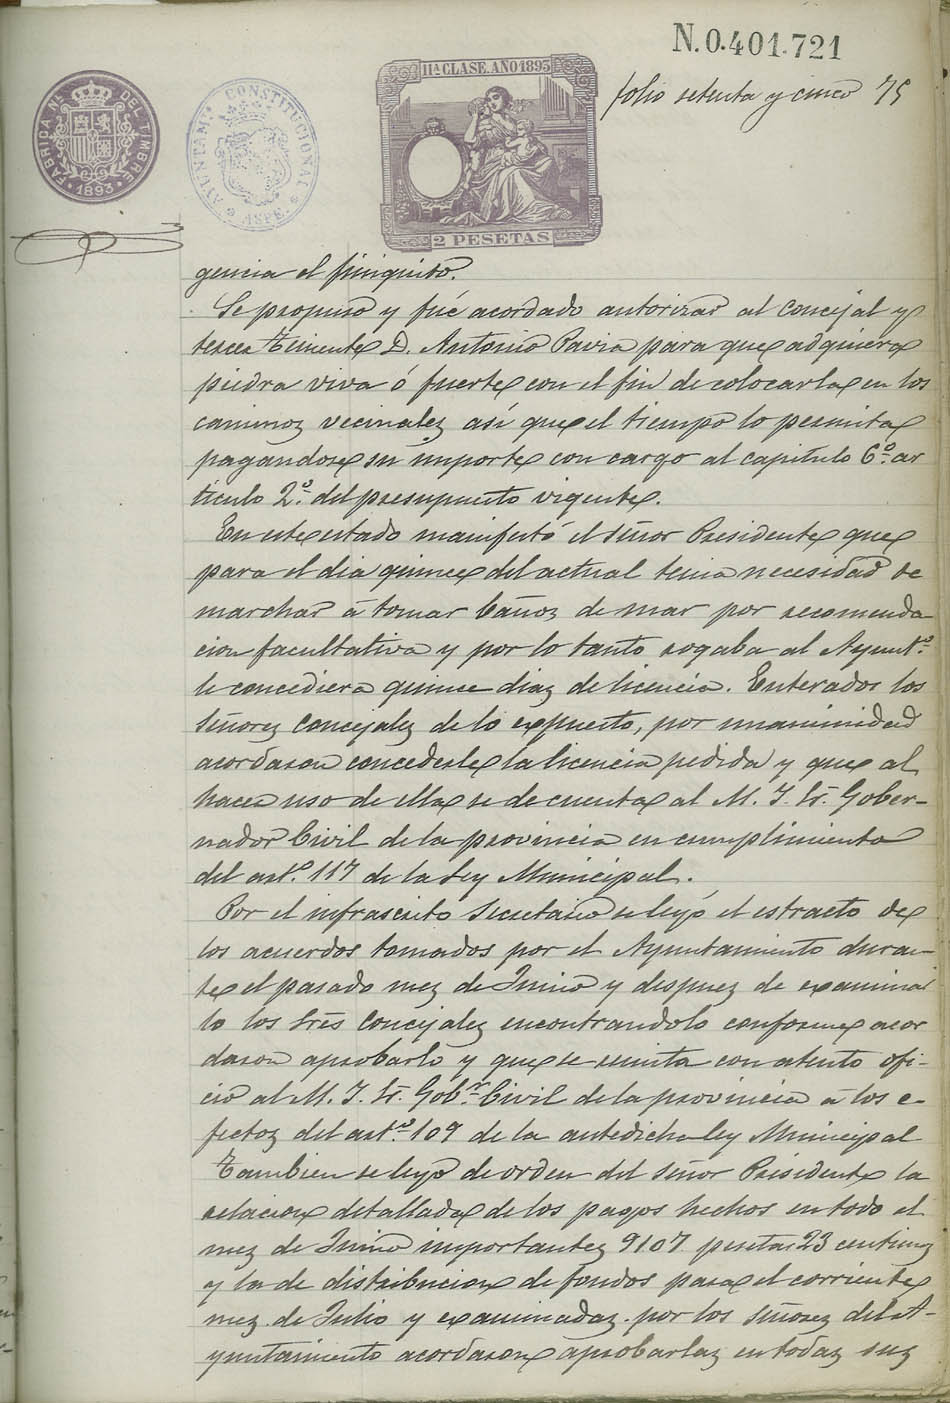 N. 0.401.721
folio setenta y cinco 75
FABRICA NAL. DEL TIMBRE
1893
AYUNTAM.º CONSTITUCIONAL
ASPE.
11ª CLASE. AÑO 1893
2 PESETAS
gencia el finiquito.
Se propuso y fué acordado autorizar al Concejal y
tercer Teniente D. Antonio Pavia para que adquiera
piedra viva ó fuerte con el fin de colocarla en los
caminos vecinales así que el tiempo lo permita
pagandose su importe con cargo al capitulo 6º ar
ticulo 2º del presupuesto vigente.
En este estado manifestó el Señor Presidente que
para el dia quince del actual tenia necesidad de
marchar á tomar baños de mar por recomenda
cion facultativa y por lo tanto rogaba al Ayuntº
le concediera quince dias de licencia. Enterados los
Señores Concejales de lo expuesto, por unanimidad
acordaron concederle la licencia pedida y que al
hacer uso de ella se de cuenta al M. I. Sr. Gober-
nador Civil de la provincia en cumplimiento
del artº 117 de la Ley Municipal.
Por el infrascrito Secretario se leyó el estracto de
los acuerdos tomados por el Ayuntamiento duran-
te el pasado mes de Junio y despues de examinar
lo los Srēs Concejales encontrandolo conforme acor
daron aprobarlo y que se remita con atento ofi-
cio al M. I. Sr. Gobr. Civil de la provincia á los e-
fectos del artº 109 de la antedicha ley Municipal
Tambien se leyó de orden del Señor Presidente la
relacion detallada de los pagos hechos en todo el
mes de Junio importantes 9107 pesetas 23 centimos
y la de distribucion de fondos para el corriente
mes de Julio y examinadas por los Señores del A-
yuntamiento acordaron aprobarlas en todas sus